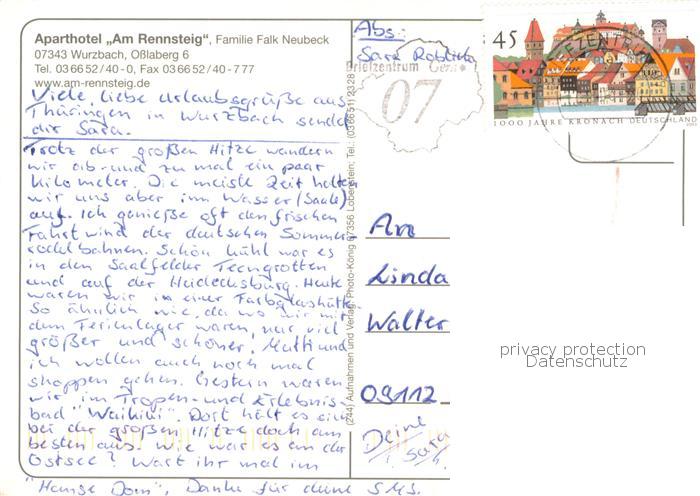 Aparthotel „Am Rennsteig“, Familie Falk Neubeck
07343 Wurzbach, Oßlaberg 6
Tel. 03 66 52 / 40 - 0, Fax 03 66 52 / 40 - 7 77
www.am-rennsteig.de
Viele, liebe Urlaubsgrüße aus
Thüringen in Wurzbach sendet
dir Sara.
Trotz der großen Hitze wandern
wir ab- und zu mal ein paar
Kilometer. Die meiste Zeit halten
wir uns aber im Wasser (Saale)
auf. Ich genieße oft den frischen
Fahrtwind der deutschen Sommer
rodelbahnen. Schön kühl war es
in den Saalfelder Feengrotten
und auf der Heidecksburg. Heute
waren wir in einer Farbglashütte.
So ähnlich wie, da wo wir mit
dem Ferienlager waren, nur viel
größer und schöner. Mutti und
ich wollen auch noch mal
shoppen gehen. Gestern waren
wir im Tropen- und Erlebnis-
bad "Waikiki". Dort hält es sich
bei der großen Hitze doch am
besten aus. Wie war es an der
Ostsee? Wart ihr mal im
"Hanse Dom", Danke für deine SMS.
(244) Aufnahmen und Verlag Photo-König 07356 Lobenstein; Tel.: (036651) 2328
Abs:
Sara
Briefzentrum
07
45
BRIEFZENTRUM
1000 JAHRE KRONACH DEUTSCHLAND
An
Linda
Walter
09112
Deine
Sara
privacy protection
Datenschutz